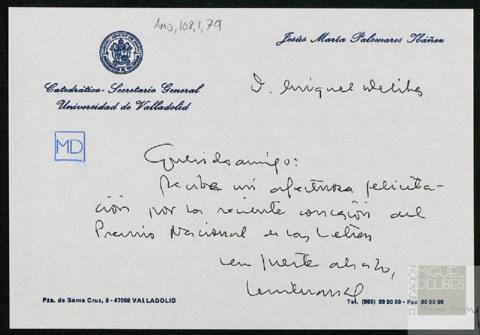 AMD, 108, 1, 79
Jesús María Palomares Ibáñez
Catedrático-Secretario General
Universidad de Valladolid
D. Miguel Delibes
MD
Querido amigo:
Reciba mi afectuosa felicita-
ción por la reciente concesión del
Premio Nacional de las Letras
Un fuerte abrazo,
Pza. de Santa Cruz, 8 - 47002 VALLADOLID
MIGUEL
DELIBES